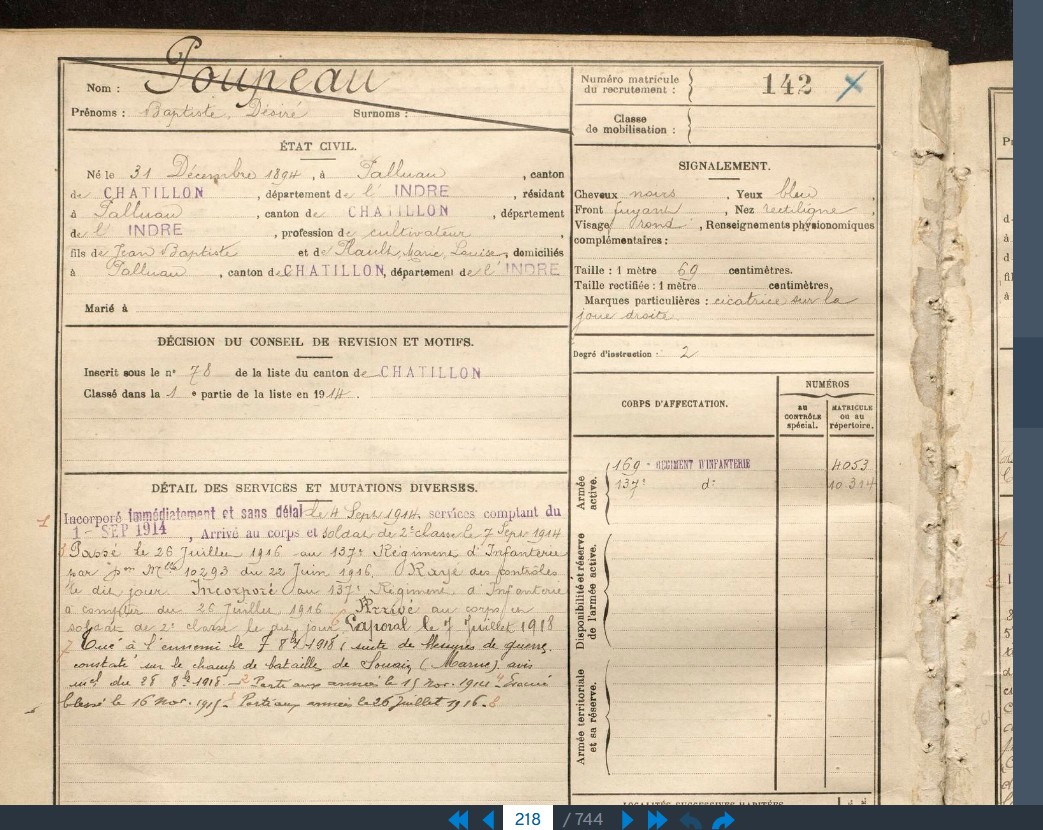 Nom : Poupeau
Prénoms : Baptiste, Désiré Surnoms :
Numéro matricule du recrutement : 142
Classe de mobilisation :
ÉTAT CIVIL.
Né le 31 Décembre 1894, à Palluau, canton
de CHATILLON, département de l' INDRE, résidant
à Palluau, canton de CHATILLON, département
de l' INDRE, profession de cultivateur,
fils de Jean Baptiste et de Marie, Louise, domiciliés
à Palluau, canton de CHATILLON, département de l' INDRE
Marié à
SIGNALEMENT.
Cheveux noirs, Yeux bleu
Front fuyant, Nez rectiligne,
Visage rond, Renseignements physionomiques
complémentaires :
Taille : 1 mètre 69 centimètres.
Taille rectifiée : 1 mètre centimètres.
Marques particulières : cicatrice sur la
joue droite.
Degré d'instruction : 2
DÉCISION DU CONSEIL DE REVISION ET MOTIFS.
Inscrit sous le n° 78 de la liste du canton de CHATILLON
Classé dans la 1e partie de la liste en 1914.
CORPS D'AFFECTATION.
NUMÉROS
au CONTRÔLE spécial.
MATRICULE ou au répertoire.
Armée active.
169e RÉGIMENT D'INFANTERIE 4053
137e do 10314
Disponibilité et réserve de l'armée active.
Armée territoriale et sa réserve.
DÉTAIL DES SERVICES ET MUTATIONS DIVERSES.
Incorporé immédiatement et sans délai le 4 Sept 1914, services comptant du
1 - SEP 1914, Arrivé au corps et soldat de 2e classe le 7 Sept 1914
Passé le 26 Juillet 1916 au 137e Régiment d'Infanterie
par 10293 du 22 Juin 1916. Rayé des contrôles
le dit jour. Incorporé au 137e Régiment d'Infanterie
à compter du 26 Juillet 1916. Arrivé au corps en
soldat de 2e classe le dit jour. Caporal le 7 Juillet 1918
Tué à l'ennemi le 7 8bre 1918, suite de blessures de guerre,
constaté sur le champ de bataille de Souain (Marne), avis
mel du 28 8bre 1918. Parti aux armées le 15 nov. 1914 Evacué
blessé le 16 nov. 1915. Parti aux armées le 26 Juillet 1916.
218 / 744